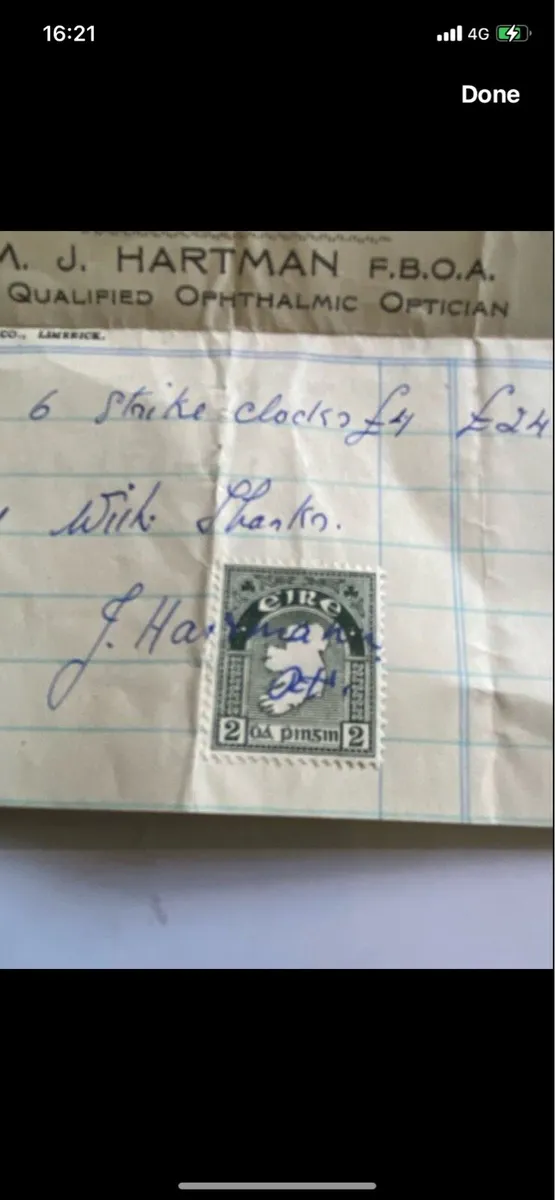 16:21
4G
Done
M. J. HARTMAN F.B.O.A.
QUALIFIED OPHTHALMIC OPTICIAN
CO., LIMERICK.
6 Strike clocks £4 £24
With Thanks.
J. Hartman
EIRE
Oct.
2 Dá pinsin 2